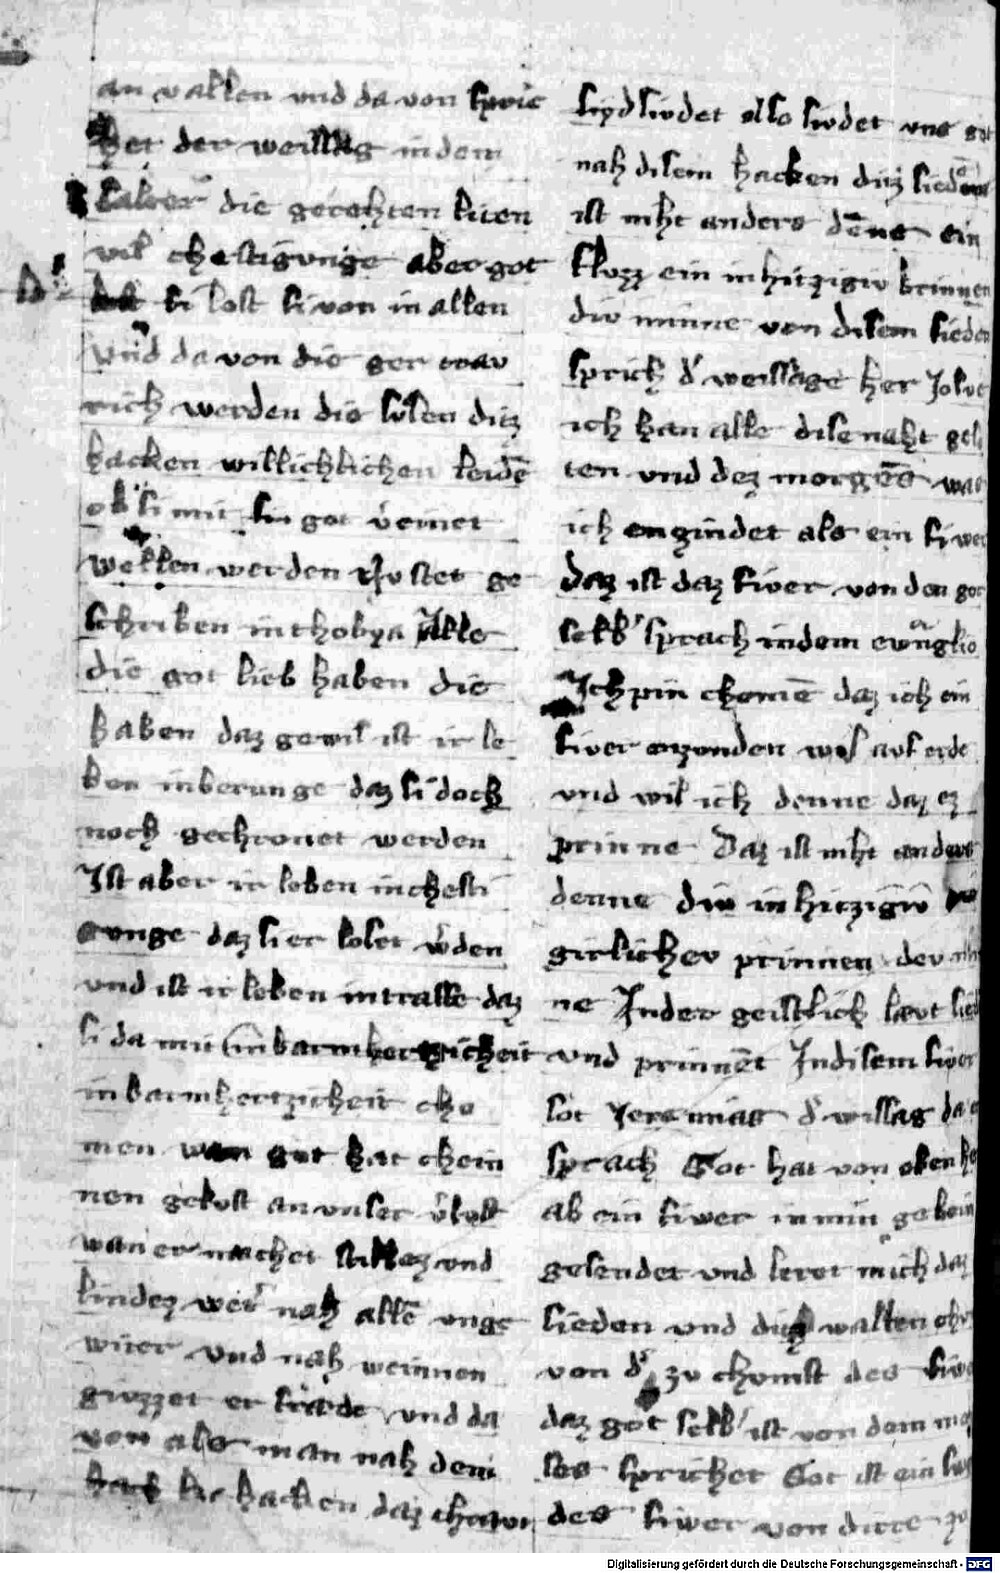 an vallen vnd da von spric
het der weissag in dem
salter die gerehten liten
vil chestigvnge aber got
si lost si von in allen
vnd da von die ger
rich werden die sulen ditz
hacken willichlichen leiden
ob si mit got vernet
wellen werden Ez stet ge
schriben in thobya Alle
die got lieb haben die
haben daz gewis ist ir le
ben in berunge daz si doch
noch gechronet werden
Ist aber ir leben in chesti
gunge daz si er loset w̓den
vnd ist ir leben in trasse daz
si da mit in barmhertzicheit
in barmhertzicheit cho
men wan got hat chein
nen gelust an vnser v̓lust
wan er machet stillez vnd
lindez wet̓ nah allē vnge
witer vnd nah weinnen
givzzet er frævde vnd da
von als man nah dem
hacken daz
sivdet also sivdet vns got
nah disem hacken ditz sieden
ist niht anders dēne ein
flvzz ein inhitzigiv brinnen
div minne von disem sieden
sprich d̓ weissage her Job
ich han alle dise naht geli
ten vnd dez morgēs was
ich engindet als ein fiwer
daz ist daz fiver von den got
selb̓ sprach in dem ewāglio
Ich pin chomē daz ich ein
fiver enzvnden wil avf erde
vnd wil ich denne daz ez
prinne Daz ist niht anders
denne div inhitzigiv
girlicher prinnen der min
ne In der geistlich lævt sied
vnd prinnēt In disem fiver
sot Jeremias d̓ wissag da er
sprach Got hat von oben her
ab ein fiwer in min gebein
gesendet vnd leret mich daz
sieden vnd ditz wallen
von d̓ zv chvnft des fiwe
daz got selb̓ ist von dem moy
ses sprichet Got ist ein
des fiwer von
Digitalisierung gefördert durch die Deutsche Forschungsgemeinschaft - DFG